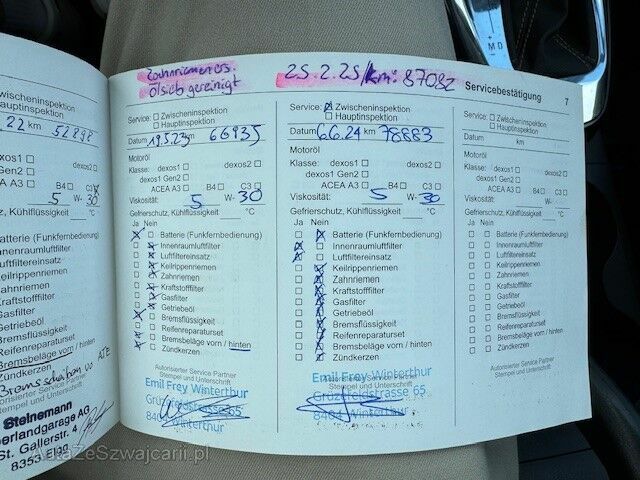 Zahnriemen ers.
Ölsieb gereinigt
25.2.25/km: 87082
Servicebestätigung 7
Zwischeninspektion
Hauptinspektion
22 km
dexos1
dexos2
dexos1 Gen2
ACEA A3 B4 C3
5 W- 30
Gefrierschutz, Kühlflüssigkeit °C
Batterie (Funkfernbedienung)
Innenraumluftfilter
Luftfiltereinsatz
Keilrippenriemen
Zahnriemen
Kraftstofffilter
Gasfilter
Getriebeöl
Bremsflüssigkeit
Reifenreparaturset
Bremsbeläge vorn / hinten
Zündkerzen
Bremsscheiben vo ATE
Autorisierter Service Partner
Stempel und Unterschrift
Steinemann
St. Gallerstr. 4
8353 Elgg
Service: Zwischeninspektion
Hauptinspektion
Datum 19.5.23 km 66935
Motoröl
Klasse: dexos1 dexos2
dexos1 Gen2
ACEA A3 B4 C3
Viskosität: 5 W- 30
Gefrierschutz, Kühlflüssigkeit °C
Ja Nein
Batterie (Funkfernbedienung)
Innenraumluftfilter
Luftfiltereinsatz
Keilrippenriemen
Zahnriemen
Kraftstofffilter
Gasfilter
Getriebeöl
Bremsflüssigkeit
Reifenreparaturset
Bremsbeläge vorn / hinten
Zündkerzen
Autorisierter Service Partner
Stempel und Unterschrift
Emil Frey Winterthur
Grüzefeldstrasse 65
8404 Winterthur
Service: Zwischeninspektion
Hauptinspektion
Datum 6.6.24 km 78883
Motoröl
Klasse: dexos1 dexos2
dexos1 Gen2
ACEA A3 B4 C3
Viskosität: 5 W- 30
Gefrierschutz, Kühlflüssigkeit °C
Ja Nein
Batterie (Funkfernbedienung)
Innenraumluftfilter
Luftfiltereinsatz
Keilrippenriemen
Zahnriemen
Kraftstofffilter
Gasfilter
Getriebeöl
Bremsflüssigkeit
Reifenreparaturset
Bremsbeläge vorn / hinten
Zündkerzen
Autorisierter Service Partner
Stempel und Unterschrift
Emil Frey Winterthur
Grüzefeldstrasse 65
8404 Winterthur
Service: Zwischeninspektion
Hauptinspektion
Datum km
Motoröl
Klasse: dexos1 dexos2
dexos1 Gen2
ACEA A3 B4 C3
Viskosität: W-
Gefrierschutz, Kühlflüssigkeit °C
Ja Nein
Batterie (Funkfernbedienung)
Innenraumluftfilter
Luftfiltereinsatz
Keilrippenriemen
Zahnriemen
Kraftstofffilter
Gasfilter
Getriebeöl
Bremsflüssigkeit
Reifenreparaturset
Bremsbeläge vorn / hinten
Zündkerzen
Autorisierter Service Partner
Stempel und Unterschrift
M D
AutaZeSzwajcarii.pl